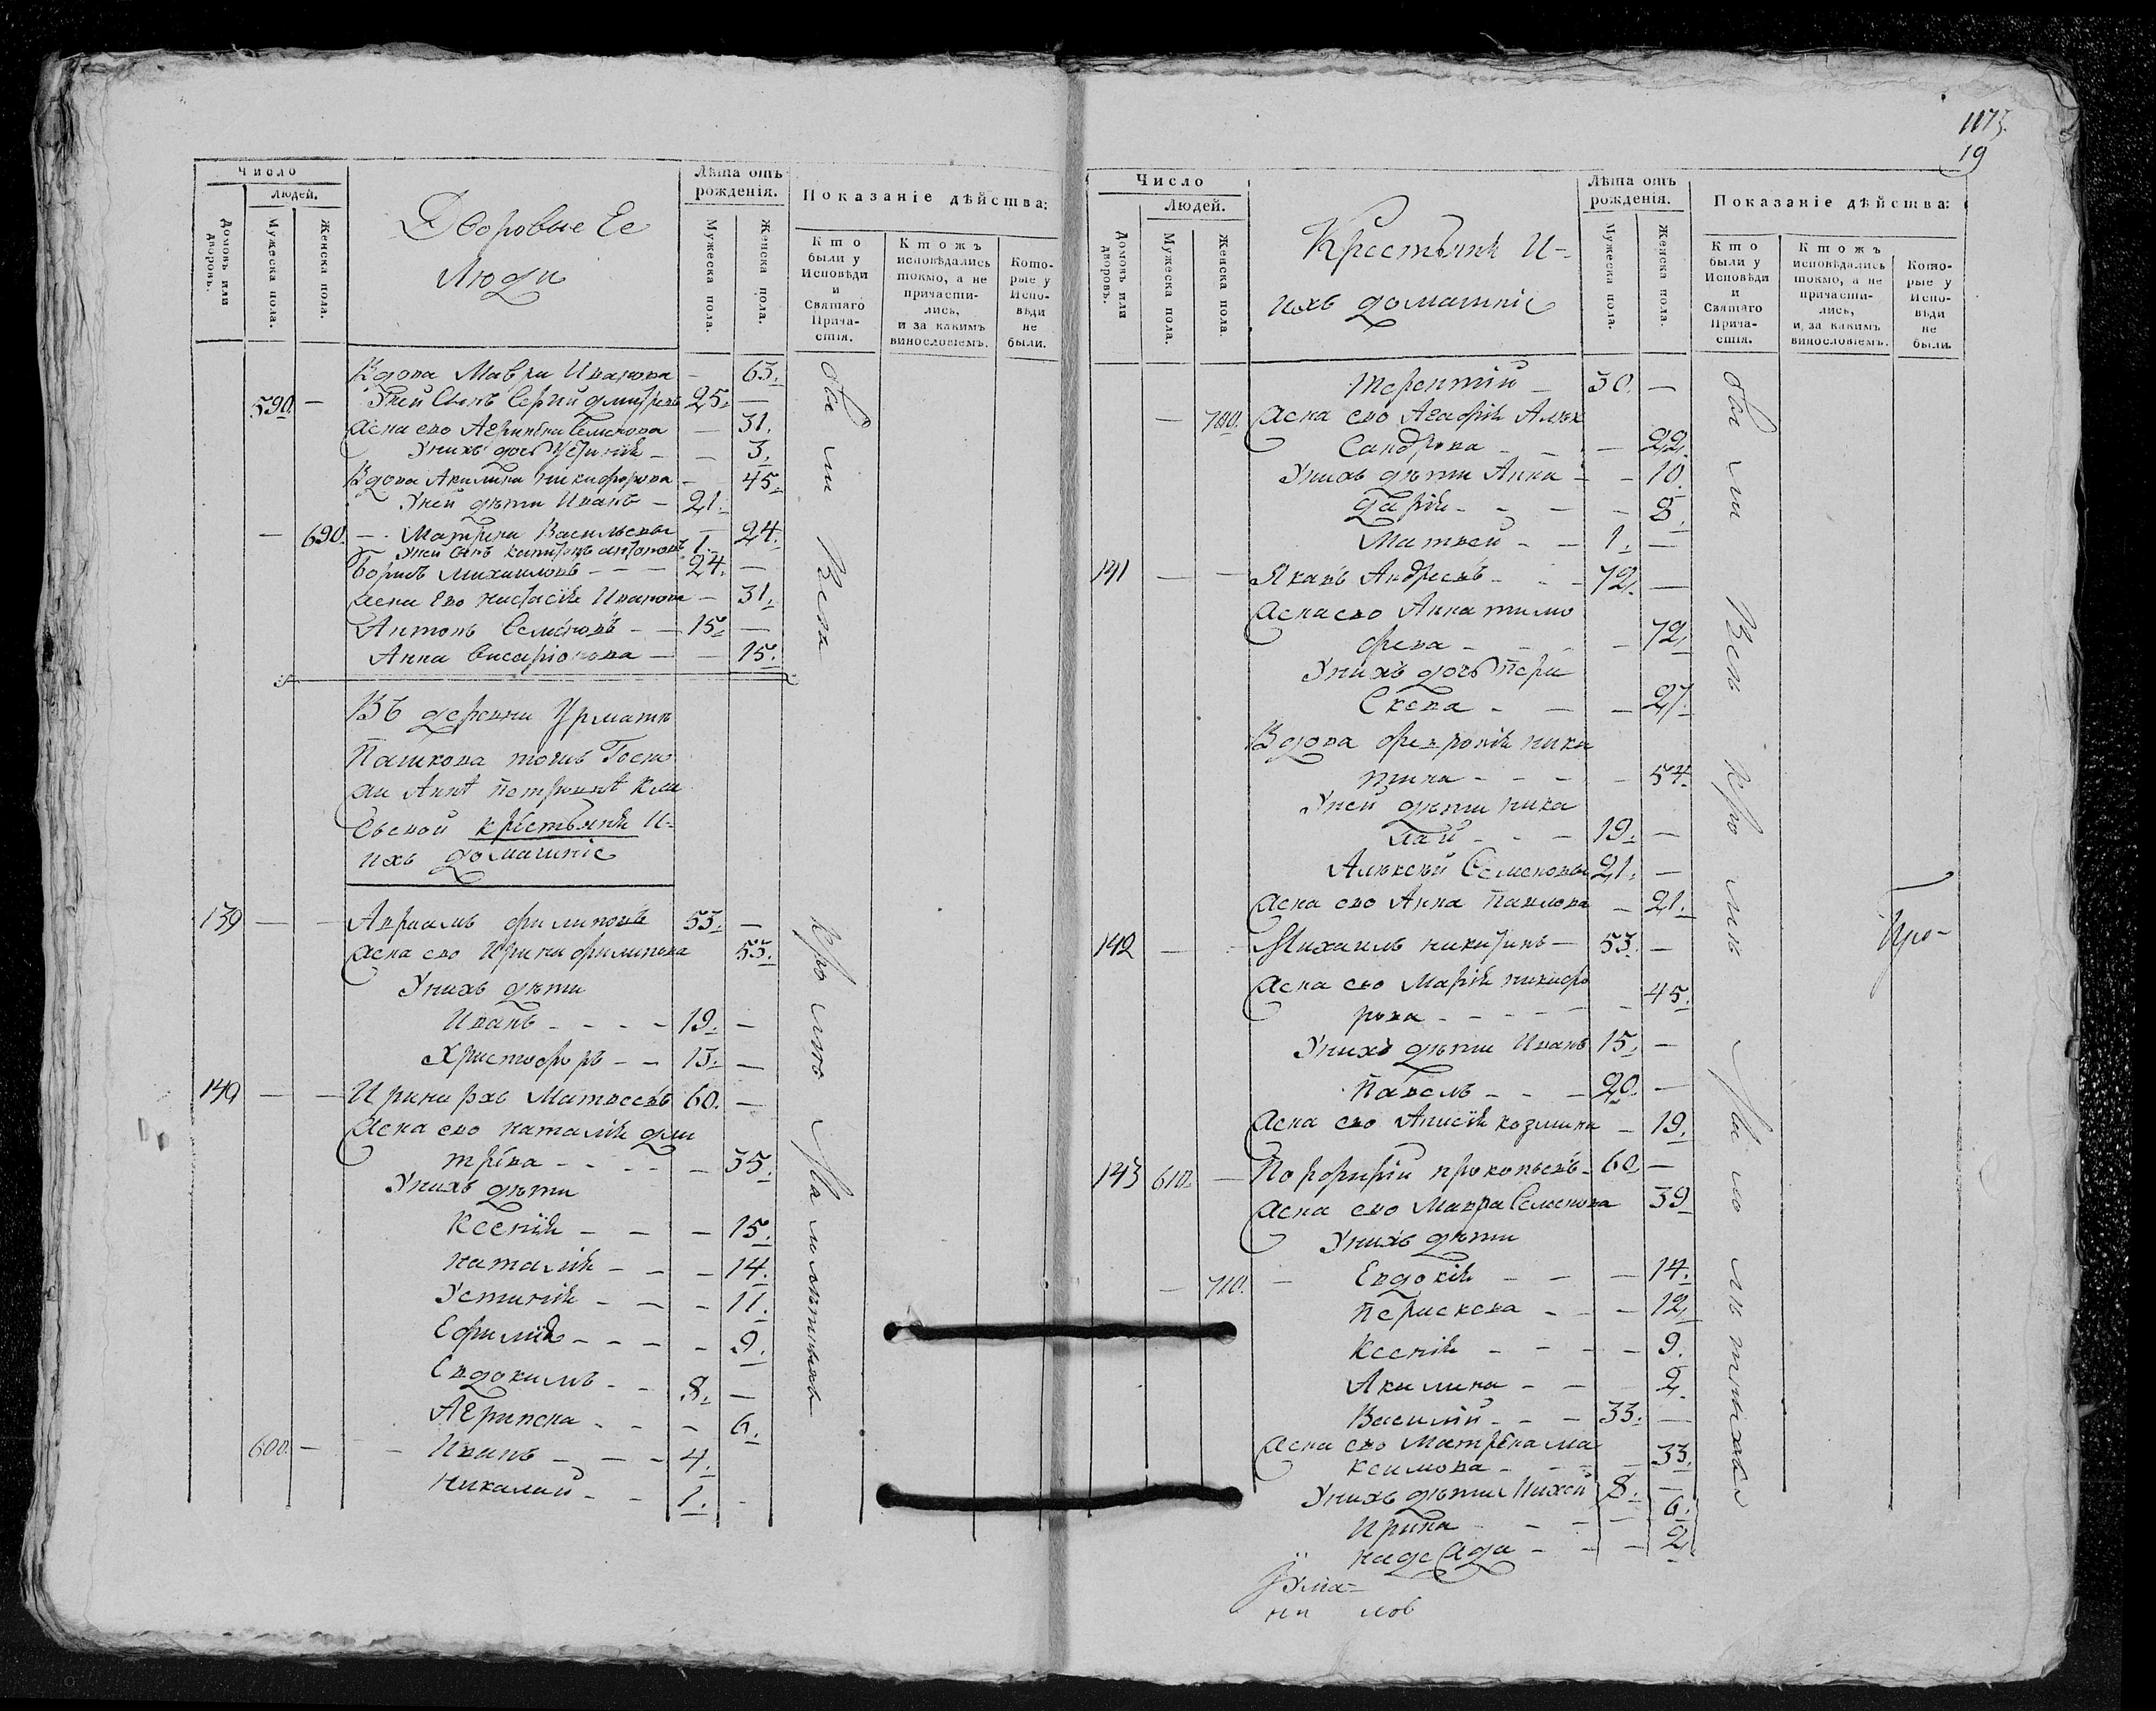 Число
Людей.
Домовъ или дворовъ.
Мужеска пола.
Женска пола.
Дворовые Ее
Люди
Лѣта отъ
рожденія.
Мужеска пола.
Женска пола.
Показаніе дѣйства:
Кто
были у
Исповѣди
и
Святаго
Прича-
стія.
Ктожъ
исповѣдались
токмо, а не
причасти-
лись,
и за какимъ
винословіемъ.
Кото-
рые у
Испо-
вѣди
не
были.
Вдова Мавра Иванова — 63.
590. — Уней Сынъ Сергий дмитревъ 25. —
жена ево Агрипена Семенова — 31.
Унихъ дочь Устинія — — 3.
Вдова Акилина никифорова — 45.
Уней дѣти Иванъ — 21.
— 690. — Матрена Васильева — 24.
Уней сынъ капитонъ антоновъ 1.
Борисъ михаиловъ — — — 24. —
жена Ево настасія Иванова — 31.
Антонъ Семеновъ — — 15. —
Анна Висаріонова — — 15.
Въ деревни Урматѣ
Пашкова тожъ Госпо
жи Аннѣ Петровнѣ
крестьянѣ и-
ихъ домашніе
139 — — Авраамъ филиповъ 53. —
жена ево Ирина филипова 53.
Унихъ дѣти
Иванъ - - - - 19. —
Христофоръ - - 13. —
140 — — Иринархъ Матвеевъ 60. —
жена ево наталія дми
трева - - - - - 35.
Унихъ дѣти
Ксенія — — — 15.
наталія - — — 14.
Устинія - — - 11.
Ефимія - - — - 9.
Евдокимъ - - 8. —
Агрипена - - - 6.
600. — — Иванъ - — - 4.
николай - - 1. -
были Вси кромѣ Малолѣтныхъ
1175.
19
Число
Людей.
Домовъ или дворовъ.
Мужеска пола.
Женска пола.
Крестьянѣ и-
ихъ домашніе
Лѣта отъ
рожденія.
Мужеска пола.
Женска пола.
Показаніе дѣйства:
Кто
были у
Исповѣди
и
Святаго
Прича-
стія.
Ктожъ
исповѣдались
токмо, а не
причасти-
лись,
и за какимъ
винословіемъ.
Кото-
рые у
Испо-
вѣди
не
были.
Терентий — 30. —
— 700. жена ево Агафія Алек
Сандрова - - — 22.
Унихъ дѣти Анна - - 10.
дарія - - — - 8.
Матвей - — 1. —
141 — — Яковъ Андреевъ - - - 72. —
жена ево Анна тимо
феева - - - - 72.
Унихъ дочь Пара
Скева - — — 27.
Вдова февронія ники
тина - - - - 54.
Уней дѣти нико
лай - - - 19. —
Алексѣй Семеновъ 21. —
жена ево Анна Павлова — 21.
142 — - Михаилъ никитинъ — 53. —
жена ево Марія никифо
рова - - - - - 45.
Унихъ дѣти Иванъ 15. —
Павелъ - - - 20. —
жена ево Анисія козмина — 19.
143 610. — Порфирій прокопьевъ - 60 —
жена ево Мавра Семенова 39
Унихъ дѣти
— 710. — Евдокія - — — 14.
Параскева - - - 12.
Ксенія - - - — 9.
Акилина - — 2.
Василій - - — 33. —
жена ево Матрена ма
ксимова - - - 33.
Унихъ дѣти Михей 8. —
Ирина - - - - 6.
надежда - - — 2.
были Вси кромѣ Малолѣтныхъ